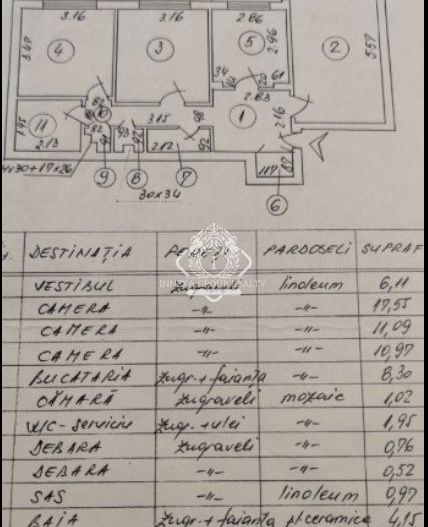 3.16 3.16 2.86
3.49 4 3 5 2.96 2 5.57
34 14 20 61
82 10 2.83
11 1.95 3.15 98 1 2.16
2.13 82 93 92 2.12 92
4x30+17x26 9 8 7 117 87
30x34 6
DESTINAȚIA PEREȚI PARDOSELI SUPRAF
VESTIBUL zugraveli linoleum 6,11
CAMERA -"- -"- 17,55
CAMERA -"- -"- 11,09
CAMERA -"- -"- 10,97
BUCATARIA zugr.+faianta -"- 8,30
CĂMARĂ zugraveli mozaic 1,02
W/C-serviciu zugr.+ulei -"- 1,95
DEBARA zugraveli -"- 0,76
DEBARA -"- -"- 0,52
SAS -"- linoleum 0,97
BAIA zugr.+faianta pl ceramica 4,15